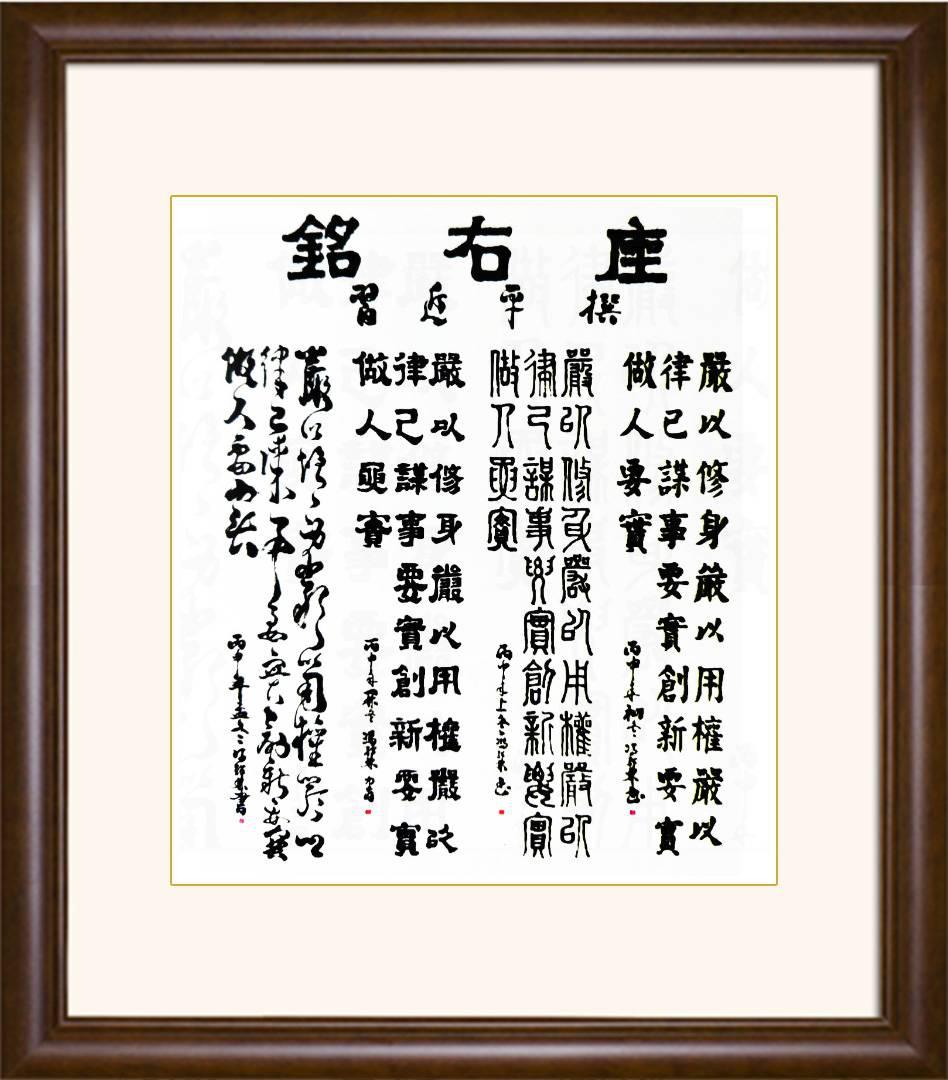 座右銘
習近平撰
嚴以修身嚴以用權嚴以
律己謀事要實創新要實
做人要實
丙申年初冬
嚴以修身嚴以用權嚴以
律己謀事要實創新要實
做人要實
丙申年上冬
嚴以修身嚴以用權嚴以
律己謀事要實創新要實
做人要實
丙申年
嚴以修身嚴以用權嚴以
律己謀事要實創新要實
做人要實
丙申年孟冬